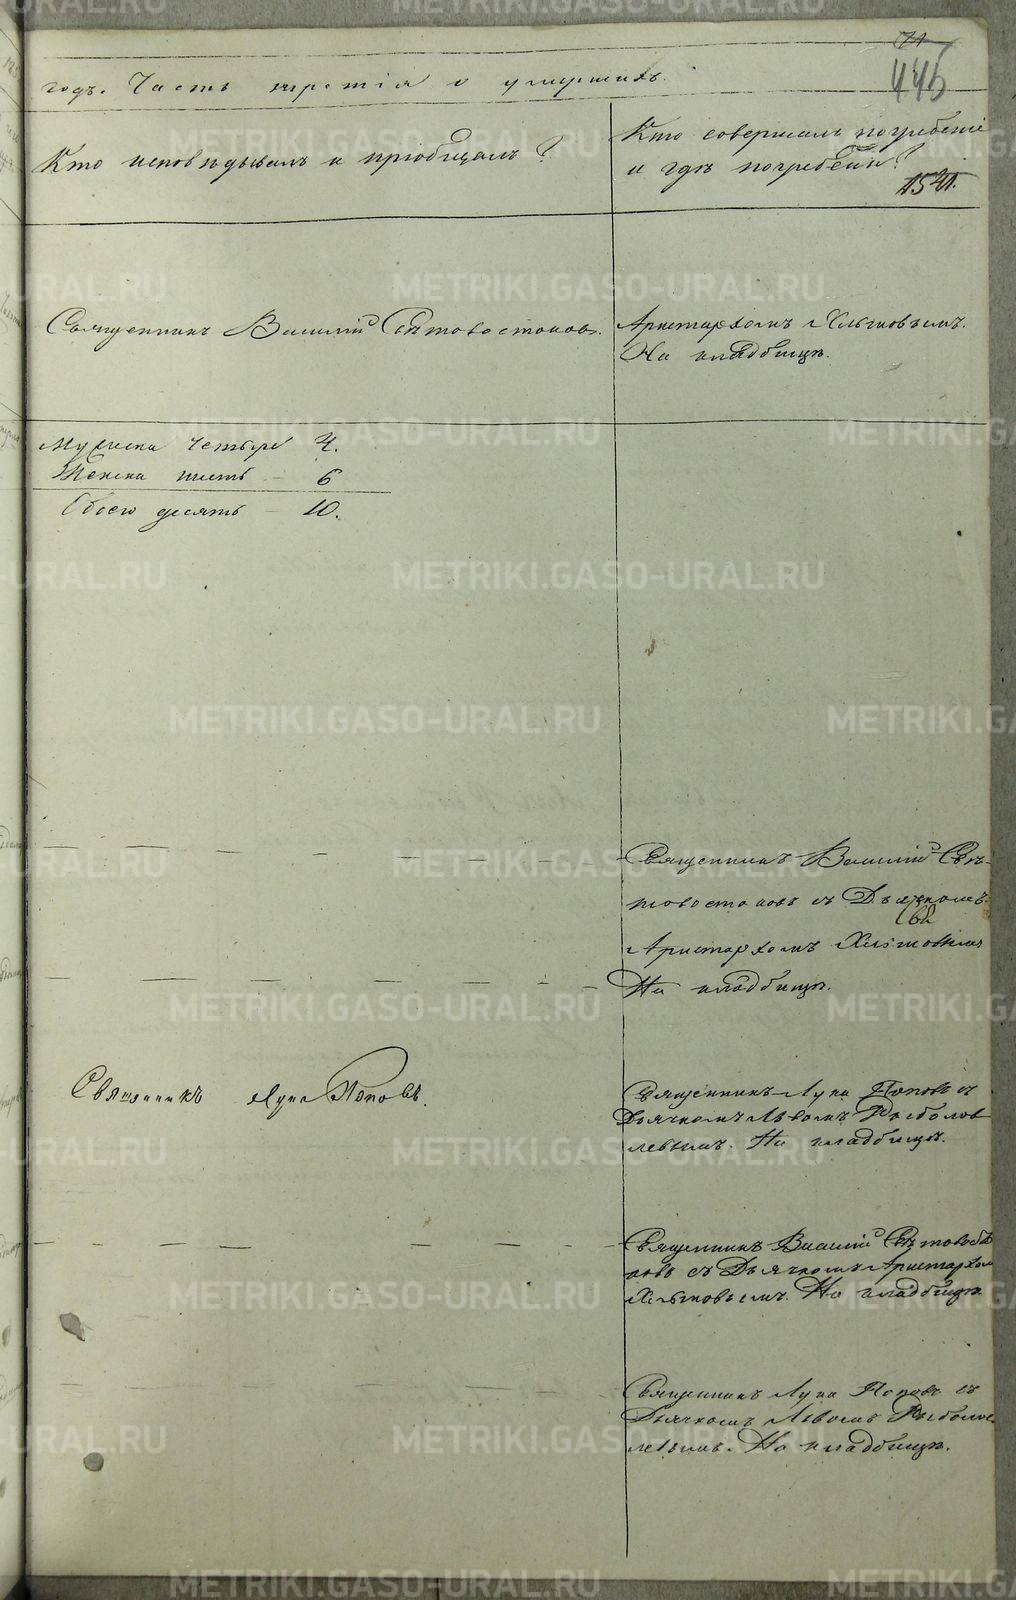 71
445
годъ. Часть третія о умершихъ.
Кто исповѣдывалъ и пріобщалъ?
Кто совершалъ погребеніе
и гдѣ погребены?
Священникъ Василій Свѣтовостоковъ.
Аристархомъ
На кладбищѣ.
Мужеска четыре 4.
Женска шесть - 6
Обоего десять - 10.
Священникъ Василій Свѣ-
товостоковъ съ Дьячкомъ
Аристархомъ
На кладбищѣ.
Священникъ Лука Поповъ.
Священникъ Лука Поповъ съ
Дьячкомъ Львомъ
На кладбищѣ.
Священникъ Василій
съ Дьячкомъ Аристархом
На кладбищѣ
Священникъ Лука Поповъ съ
Дьячкомъ Львомъ
На кладбищѣ.
METRIKI.GASO-URAL.RU